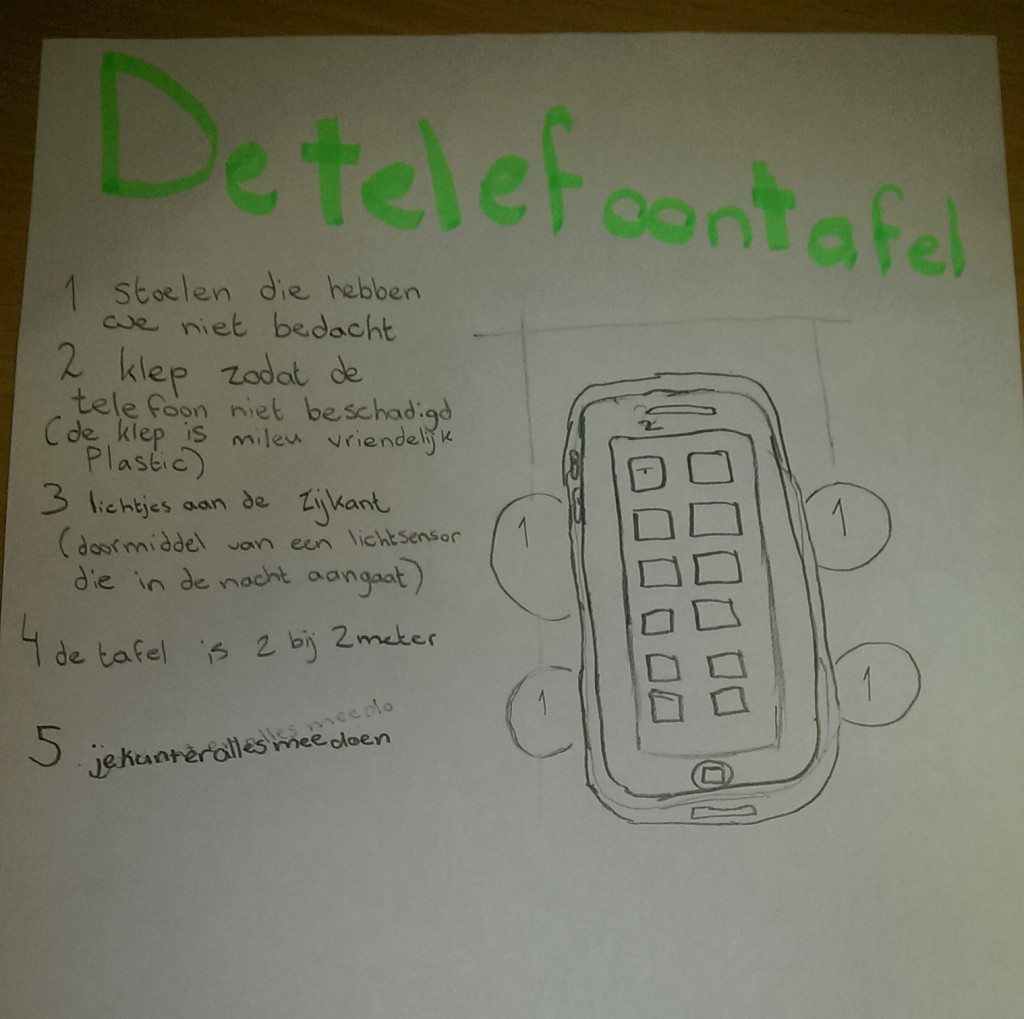 De telefoontafel
1 stoelen die hebben
we niet bedacht
2 klep zodat de
telefoon niet beschadigd
(de klep is mileu vriendelijk
Plastic)
3 lichtjes aan de zijkant
(doormiddel van een lichtsensor
die in de nacht aangaat)
4 de tafel is 2 bij 2 meter
5 je kunt er alles mee doen
2
1
1
1
1